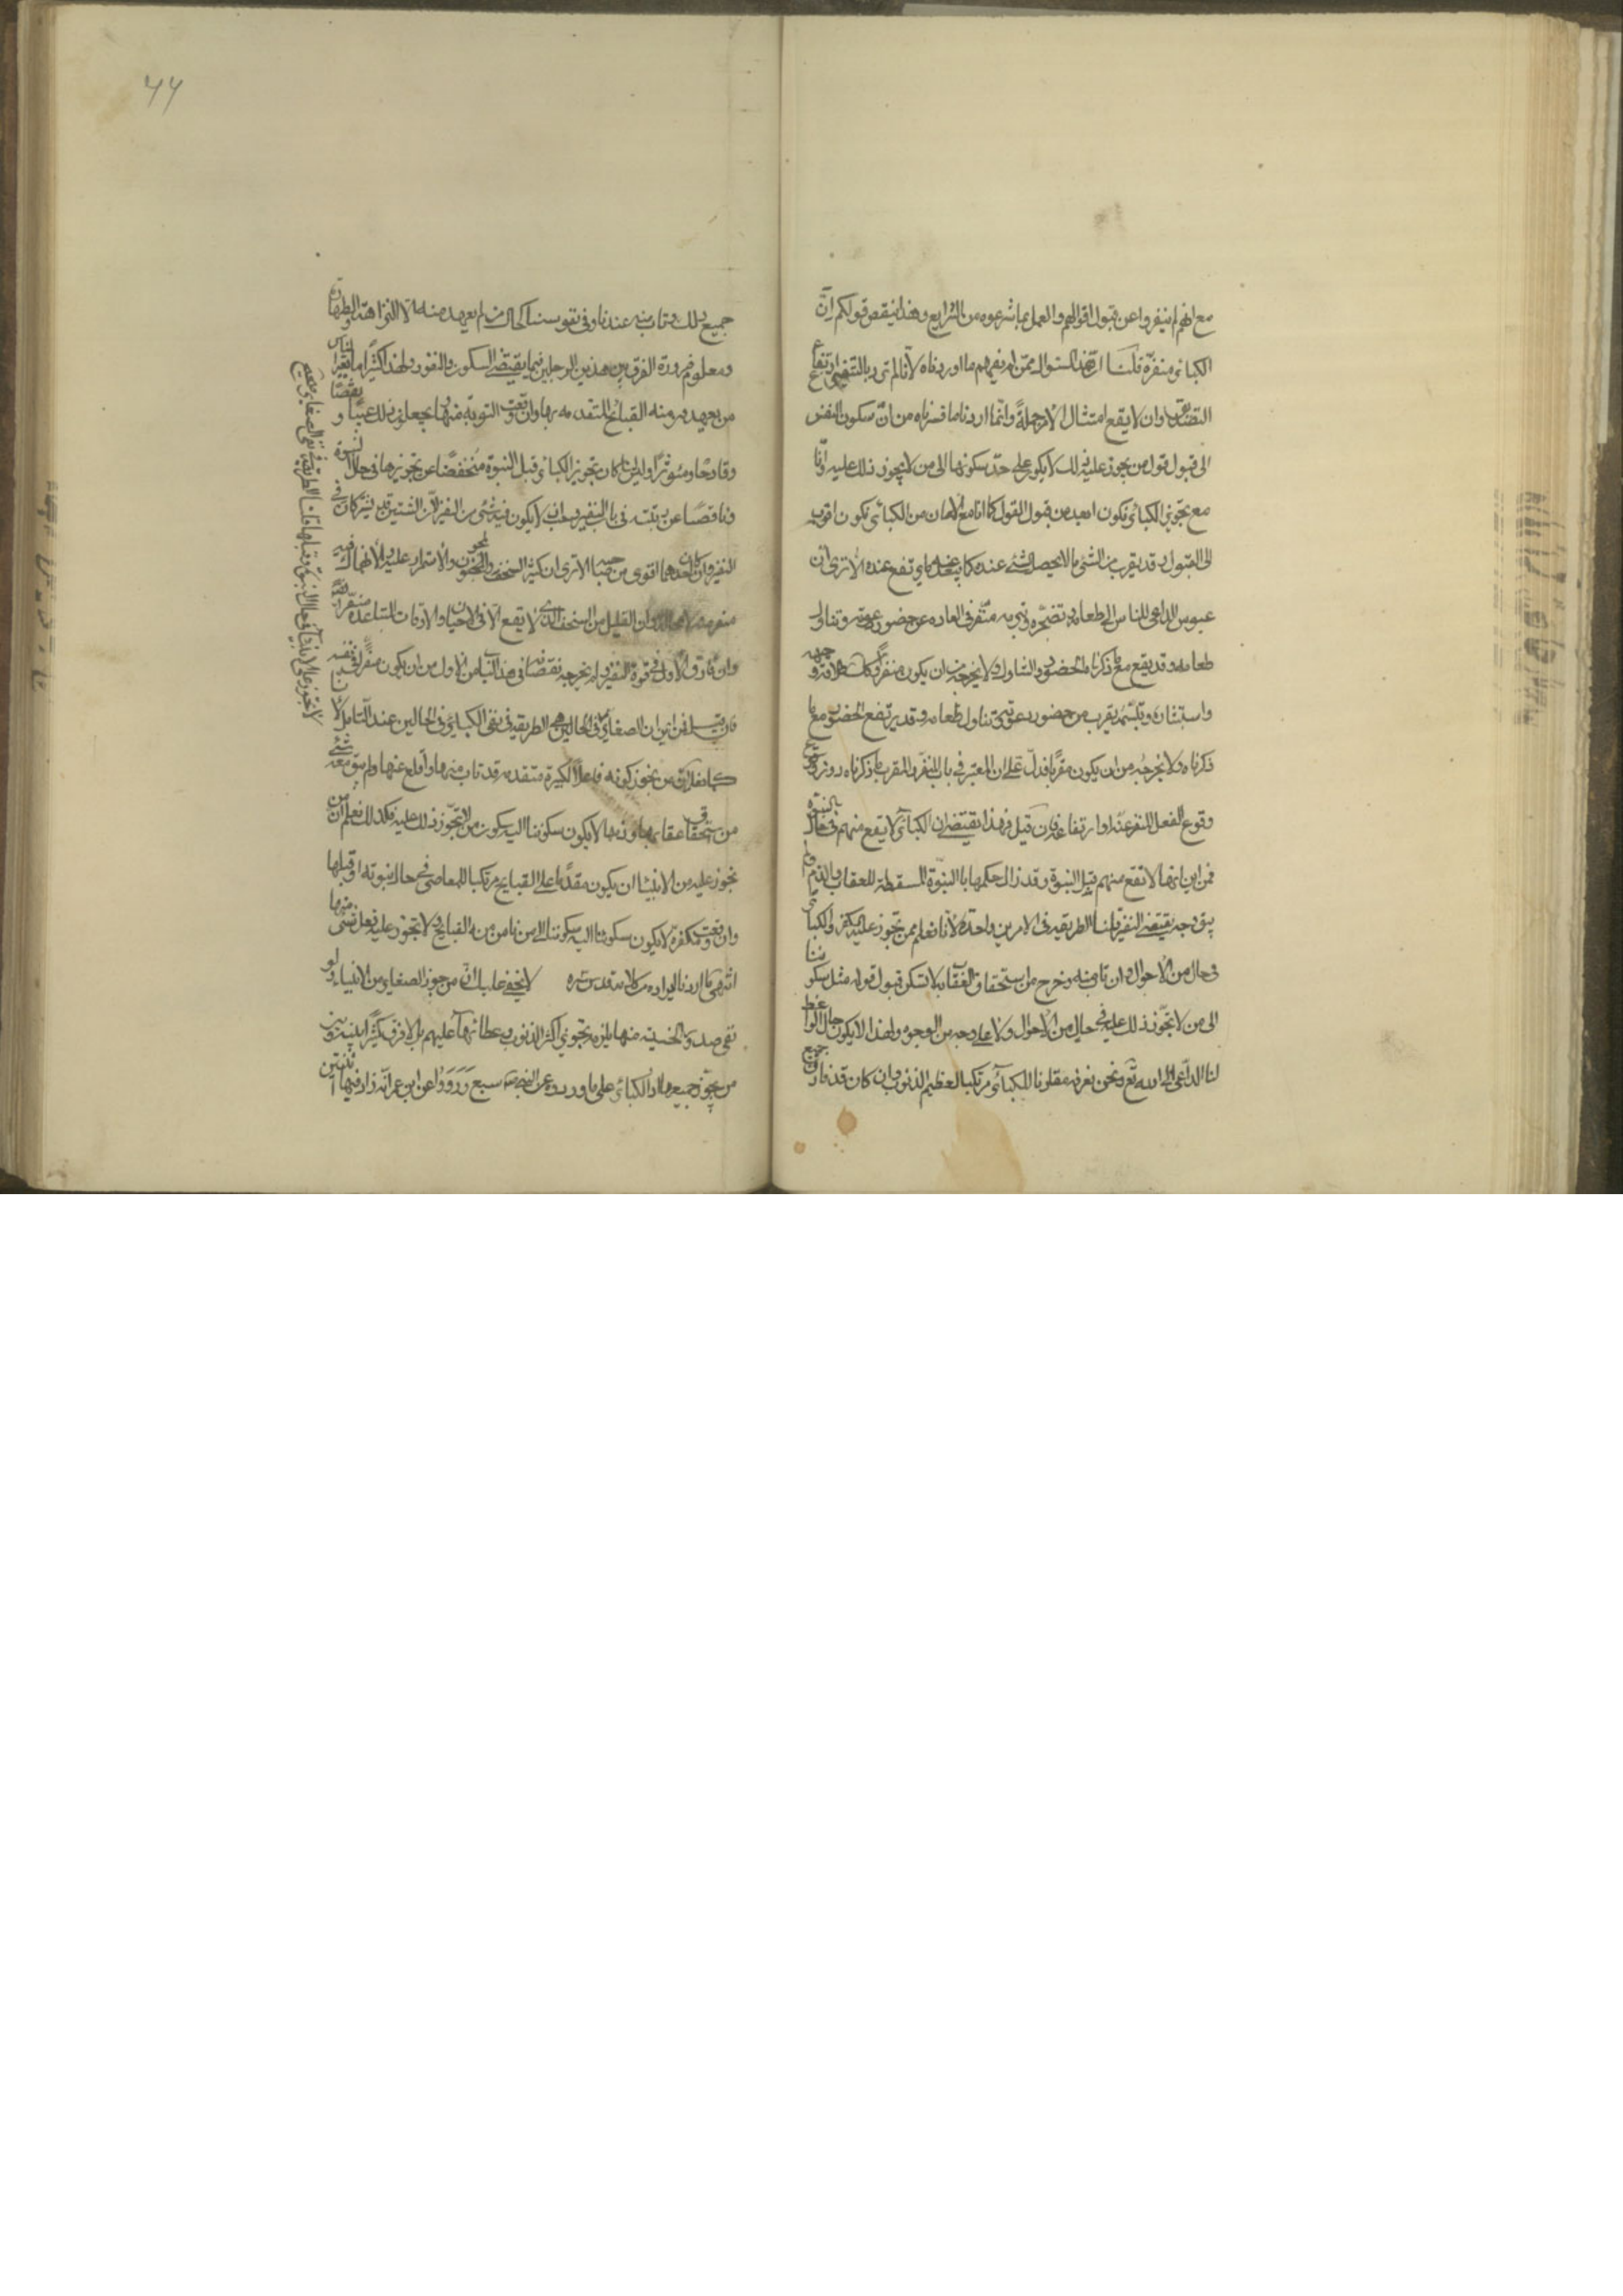 مع انهم لم ينفروا عن قبول اقوالهم والعمل بما شرعوه من الشرايع وهذا ينقض قولكم ان
الكبائر منفرة قلنا هذا سؤال من لم يفهم ما اوردناه لانا لم نرد بالتنفير ارتفاع
التصديق وان لا يقع امتثال الامر جملة وانما اردنا ما فسرناه من ان سكون النفس
الى قبول قول من يجوز عليه ذلك لا يكون على حد سكونها الى من لا يجوز ذلك عليه وانا
مع تجويز الكبائر نكون ابعد من قبول القول كما انا مع الامان من الكبائر نكون اقرب
الى القبول وقد يقرب من الشئ ما لا يحصل الشئ عنده كما يبعد عنه ما يرتفع عنده الا ترى ان
عبوس الداعي للناس الى طعامه وتضجره وتبرمه منفر في العادة عن حضور دعوته وتناول
طعامه وقد يقع مع ما ذكرناه الحضور والتناول ولا يخرجه من ان يكون منفرا وكذلك طلاقة وجهه
واستبشاره وتبسمه يقرب من حضور دعوته وتناول طعامه وقد يرتفع الحضور مع ما
ذكرناه ولا يخرجه من ان يكون مقربا فدل على ان المعتبر في باب المنفر والمقرب ما ذكرناه دون
وقوع الفعل المنفر عنه او ارتفاعه فان قيل فهذا يقتضي ان الكبائر لا يقع منهم في حال النبوة
فمن اين انها لا تقع منهم قبل النبوة وقد زال حكمها بالنبوة المسقطة للعقاب والذم ولم
يبق وجه يقتضي التنفير قلنا الطريقة في الامرين واحدة لانا نعلم ممن تجوز عليه الكفر والكبائر
في حال من الاحوال وان تاب منه وخرج من استحقاق العقاب لا نسكن قبول قوله مثل سكوننا
الى من لا نجوز ذلك عليه في حال من الاحوال ولا على وجه من الوجوه ولهذا لا يكون حال الواعظ
لنا الداعي الى الله تع ونحن نعرفه مقارنا للكبائر مرتكبا لعظيم الذنوب وان كان قد فارق جميع
جميع ذلك وتاب منه عندنا وفي نفوسنا كحال من لم يعهد منه الا النزاهة والطهارة
ومعلوم ضرورة الفرق بين هذين الرجلين فيما يقتضي السكون والنفور ولهذا كثيرا ما يعير الناس
من يعهدون منه القبائح المتقدمة بها وان وقعت التوبة منها ويجعلون ذلك عيبا ونقصا
وقادحا ومؤثرا وليس اذا كان تجويز الكبائر قبل النبوة منخفضا عن تجويزها في حال النبوة
وناقصا عن رتبته في باب التنفير وجب ان لا يكون فيه شئ من التنفير لان الشيئين قد يشتركان في
التنفير وان كان احدهما اقوى من صاحبه الا ترى ان كثرة السخف والمجون والاستمرار عليه والانهماك فيه
منفر لا محالة وان القليل من السخف الذي لا يقع الا في الاحيان والاوقات المتباعدة منفر ايضا
وان فارق الاول في قوة التنفير ولم يخرجه نقصانه في هذا الباب من الاول من ان يكون منفرا في نفسه
فان قيل فمن اين ان الصغاير
لا تجوز على الانبياء في حال النبوة وقبلها قلنا الطريقة في نفي الصغاير
في الحالين هي الطريقة في نفي الكبائر في الحالين عند التامل لانا
كما نعلم ان من يجوز كونه فاعلا لكبيرة متقدمة قد تاب منها واقلع عنها ولم يبق معه شئ
من استحقاق عقابها وذمها لا يكون سكوننا اليه كسكوننا الى من لا نجوز ذلك عليه فكذلك نعلم ان من
نجوز عليه من الانبياء ان يكون مقدما على القبايح مرتكبا للمعاصي في حال نبوته او قبلها
وان وقعت مكفرة لا يكون سكوننا اليه كسكوننا الى من نامن منه القبايح ولا نجوز عليه فعل شئ منها
انتهى ما اردنا ايراده من كلامه قدس سره لا يخفى عليك ان من جوز الصغاير من الانبياء ولو
نفى صدور الخسيسة منها يلزمه تجويز اكثر الذنوب وعظائمها عليهم بل لا فرق كثيرا بينه وبين
من يجوز جميع الكبائر على ما ورد عن النبي سبع ورووا عن ابن عمر انه زاد فيها اثنتين